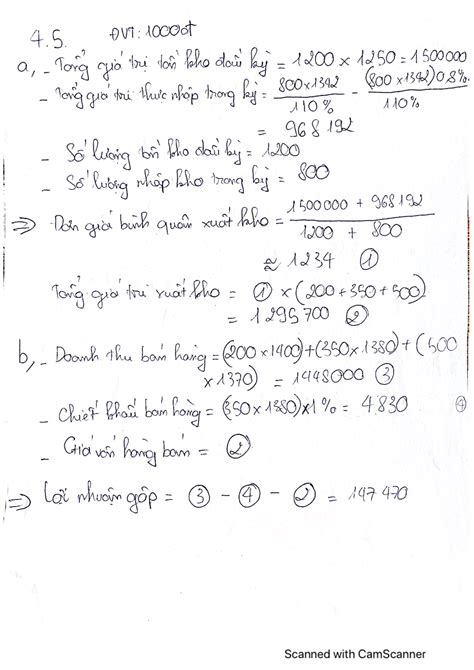 4.5. ĐVT: 1000đ
a, - Tổng giá trị tồn kho đầu kỳ = 1200 x 1250 = 1500000
- Tổng giá trị thực nhập trong kỳ = 800x1342 / 110% - (800x1342)0.8% / 110%
= 968192
- Số lượng tồn kho đầu kỳ = 1200
- Số lượng nhập kho trong kỳ = 800
=> Đơn giá bình quân xuất kho = 1500000 + 968192 / 1200 + 800
≈ 1234 ①
Tổng giá trị xuất kho = ① x (200+350+500)
= 1295700 ②
b, - Doanh thu bán hàng = (200x1400)+(350x1380)+(500
x1370) = 1448000 ③
- Chiết khấu bán hàng = (350x1380)x1% = 4.830 ④
- Giá vốn hàng bán = ②
=> Lợi nhuận gộp = ③ - ④ - ② = 147470
Scanned with CamScanner